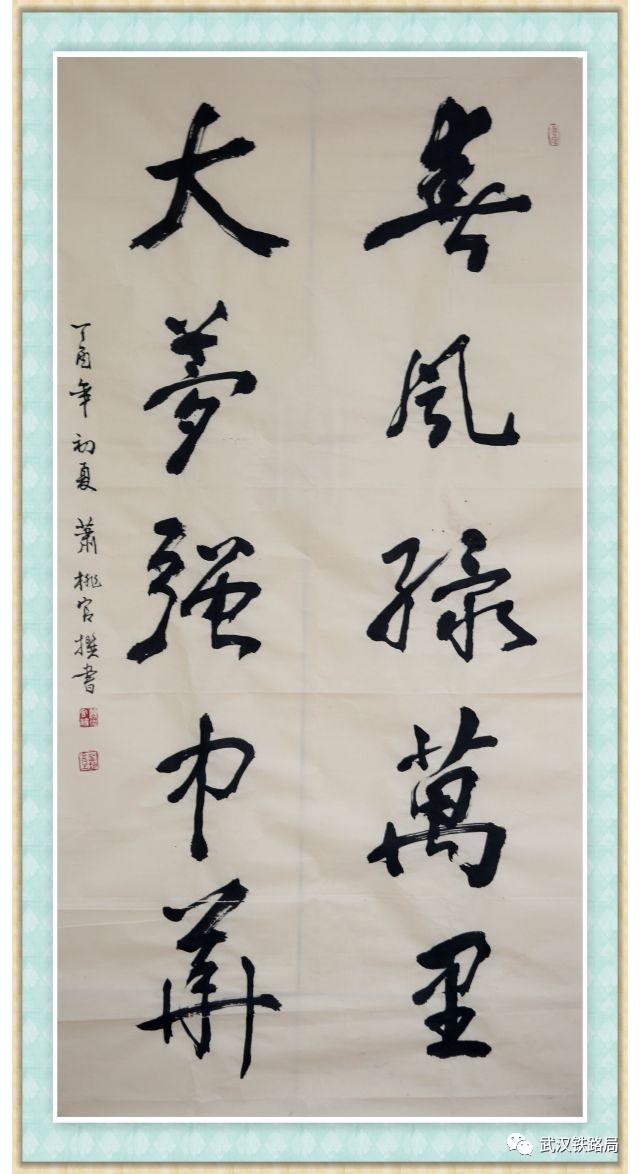 春風綠萬里
大夢強中華
丁酉年初夏 蕭桃官撰書
武汉铁路局